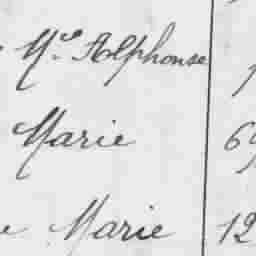 Mce Alphonse
Marie 69
Marie 12